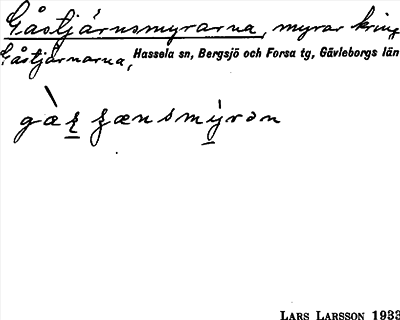 Gåstjärnsmyrarna, myrar kring
Gåstjärnarna, Hassela sn, Bergsjö och Forsa tg, Gävleborgs län
LARS LARSSON 1933